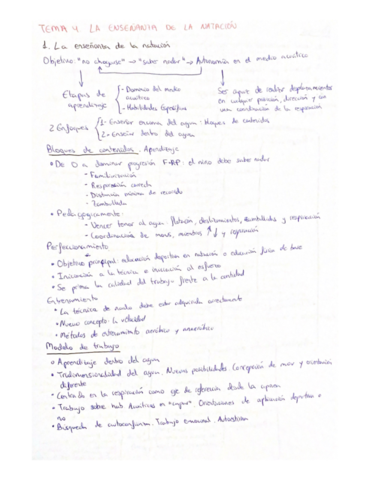 TEMA 4. LA ENSEÑANZA DE LA NATACIÓN
1. La enseñanza de la natación
Objetivo: "no ahogarse" → "saber nadar" → Autonomía en el medio acuático
Etapas de aprendizaje
- Dominio del medio acuático
- Habilidades específicas
Ser capaz de realizar desplazamientos en cualquier posición, dirección y con una coordinación de la respiración
2 Enfoques
1- Enseñar encima del agua: bloques de contenidos
2- Enseñar dentro del agua
Bloques de contenidos. Aprendizaje
• De 0 a dominar progresión F-RP: el niño debe saber nadar
- Familiarización
- Respiración correcta
- Distancia mínima de recorrido
- Zambullida
• Pedagógicamente:
- Vencer temor al agua: flotación, deslizamientos, zambullidas y respiración
- Coordinación de movs. mientras ↑↓ y respiración
Perfeccionamiento
• Objetivo principal: educación deportiva en natación o educación física de base
• Iniciación a la técnica e iniciación al esfuerzo
• Se prima la calidad del trabajo frente a la cantidad
Entrenamiento
• La técnica de nado debe estar adquirida correctamente
• Nuevo concepto: La velocidad
• Métodos de entrenamiento aeróbico y anaeróbico
Modelos de trabajo
• Aprendizaje dentro del agua
• Tridimensionalidad del agua. Nuevas posibilidades. Concepción de mover y sustentación diferente
• Centrada en la respiración como eje de
• Trabajo sobre Hab. Acuáticas en
no
• Búsqueda de autoconfianza. Trabajo emocional.